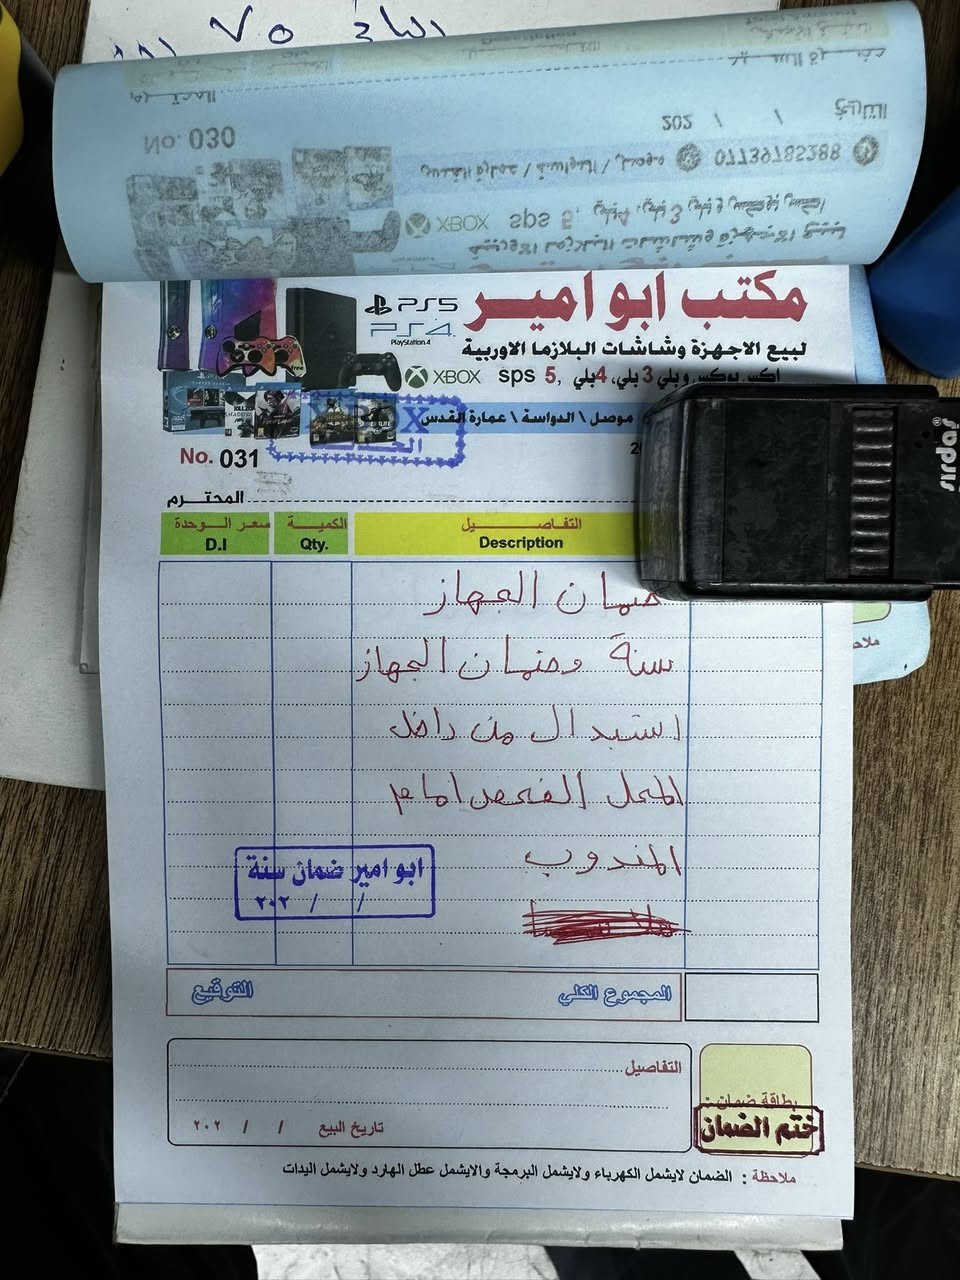 No. 030
202 / /
07739785288
XBOX sps
مكتب ابو امير
PS5
PS4
PlayStation 4
لبيع الاجهزة وشاشات البلازما الاوربية
XBOX sps 5, اكس بوكس وبلي 3 بلي، 4بلي
موصل \ الدواسة \ عمارة القدس
XBOX
No. 031
المحترم
التفاصيل الكمية سعر الوحدة
Description Qty. D.I
ضمان الجهاز
سنة وضمان الجهاز
استبدال من داخل
المحل الفحص امام
المندوب
ابو امير ضمان سنة
/ / ٢٠٢
المجموع الكلي التوقيع
التفاصيل
تاريخ البيع / / ٢٠٢
بطاقة ضمان :
ختم الضمان
ملاحظة : الضمان لايشمل الكهرباء ولايشمل البرمجة والايشمل عطل الهارد ولايشمل اليدات
sirdaş